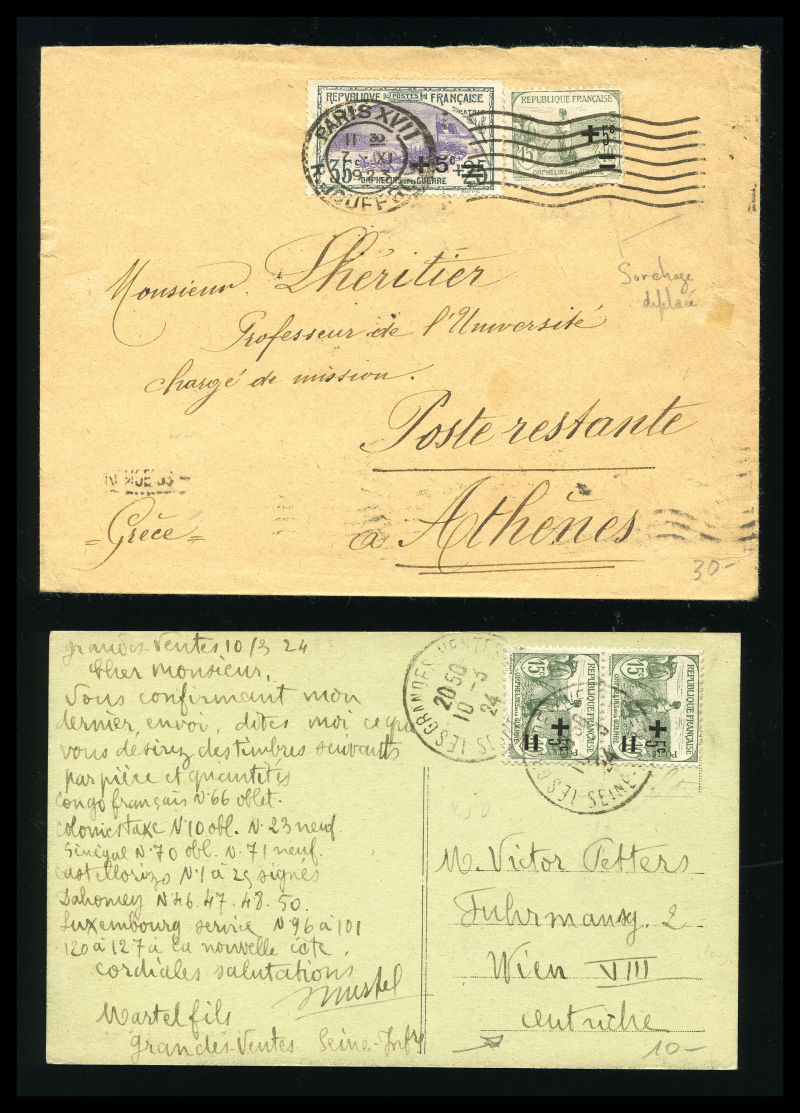 REPVBLIQUE POSTES FRANÇAISE
35c +5c +25
ORPHELINS DE LA GUERRE
PARIS XVII
11 30
7 XI
1923
R. JOUFFROY
REPUBLIQUE FRANÇAISE
15c +5c
ORPHELINS DE LA GUERRE
Surchage
déplacé
Monsieur Lhéritier
Professeur de l'Université
chargé de mission.
Poste restante
à Athènes
= Grèce =
30-
Grandes-Ventes 10/3 24
Cher Monsieur,
Vous confirmant mon
dernier envoi, dites moi ce que
vous désirez des timbres suivants
par pièce et quantités
Congo français N°66 oblet.
colonies taxe N°10 obl. N. 23 neuf.
Sénégal N°70 obl. N. 71 neuf.
Castellorizo N°1 à 25 signés
Dahomey N°46. 47. 48. 50.
Luxembourg service N°96 à 101
120 à 127 à la nouvelle cote
cordiales salutations
Martel
Martel fils
Grandes-Ventes Seine-Infre
LES GRANDES VENTES
20 50
10 - 3
24
15c
REPUBLIQUE FRANÇAISE
ORPHELINS DE LA GUERRE
+5c
15c
REPUBLIQUE FRANÇAISE
ORPHELINS DE LA GUERRE
POSTES
+5c
SEINE
4.50
M. Victor Petters
Fuhrmansg. 2
Wien VIII
Autriche
10-